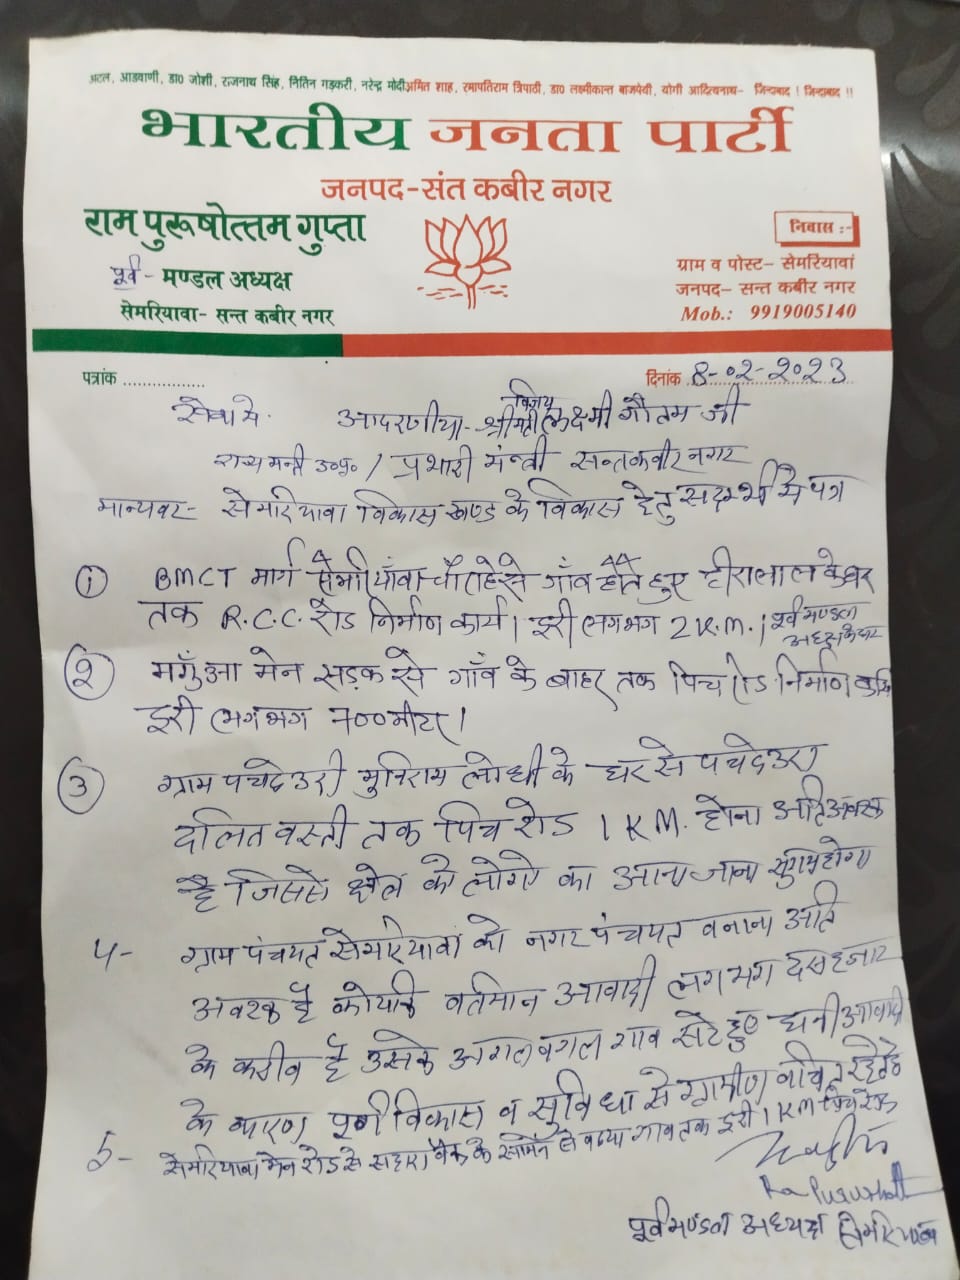 अटल, आडवाणी, डा0 जोशी, राजनाथ सिंह, नितिन गड़करी, नरेन्द्र मोदी अमित शाह, रमापतिराम त्रिपाठी, डा0 लक्ष्मीकान्त बाजपेयी, योगी आदित्यनाथ- जिन्दाबाद ! जिन्दाबाद !!
भारतीय जनता पार्टी
जनपद-संत कबीर नगर
राम पुरूषोत्तम गुप्ता
पूर्व - मण्डल अध्यक्ष
सेमरियावा- सन्त कबीर नगर
निवास :-
ग्राम व पोस्ट- सेमरियावां
जनपद- सन्त कबीर नगर
Mob.: 9919005140
पत्रांक ..................
दिनांक 8-02-2023
सेवा मे. आदरणीया- श्रीमती विजय लक्ष्मी गौतम जी
राज्य मन्त्री उ०प्र० / प्रभारी मंन्त्री सन्तकबीर नगर
मान्यवर- सेमरियावा विकास खण्ड के विकास हेतु सदर्म्भ मे पत्र
① BMCT मार्ग सेमरियाँवा चौराहे से गाँव होते हुए हीरालाल के घर
तक R.C.C. रोड निर्माण कार्य। दूरी लगभग 2 K.M. । पूर्व मण्डल
② मगुँआ मेन सड़क से गाँव के बाहर तक पिच रोड निर्माण
दूरी लगभग 700 मीटर।
③ ग्राम पचदेउरी मुनिराम लोधी के घर से पचदेउरा
दलित वस्ती तक पिच रोड 1 KM. होना अतिआवश्क
है जिससे क्षेत्र के लोगो का आना जाना सुगम होगा
4- ग्राम पंचयत सेमरियावां को नगर पंचयत वनाना अति
अवश्क है क्योकि वर्तमान आवादी लगभग दस हजार
के करीव है उसके अगल वगल गाव सटे हुए घनी आवादी
के कारण पूर्ण विकास व सुविधा से ग्रामीण वंचित रहते है
5- सेमरियावा मेन रोड से सहारा बैंक के सामने से गाव तक दूरी 1 KM पिच रोड
पूर्व मण्डल अध्यक्ष सेमरियावा